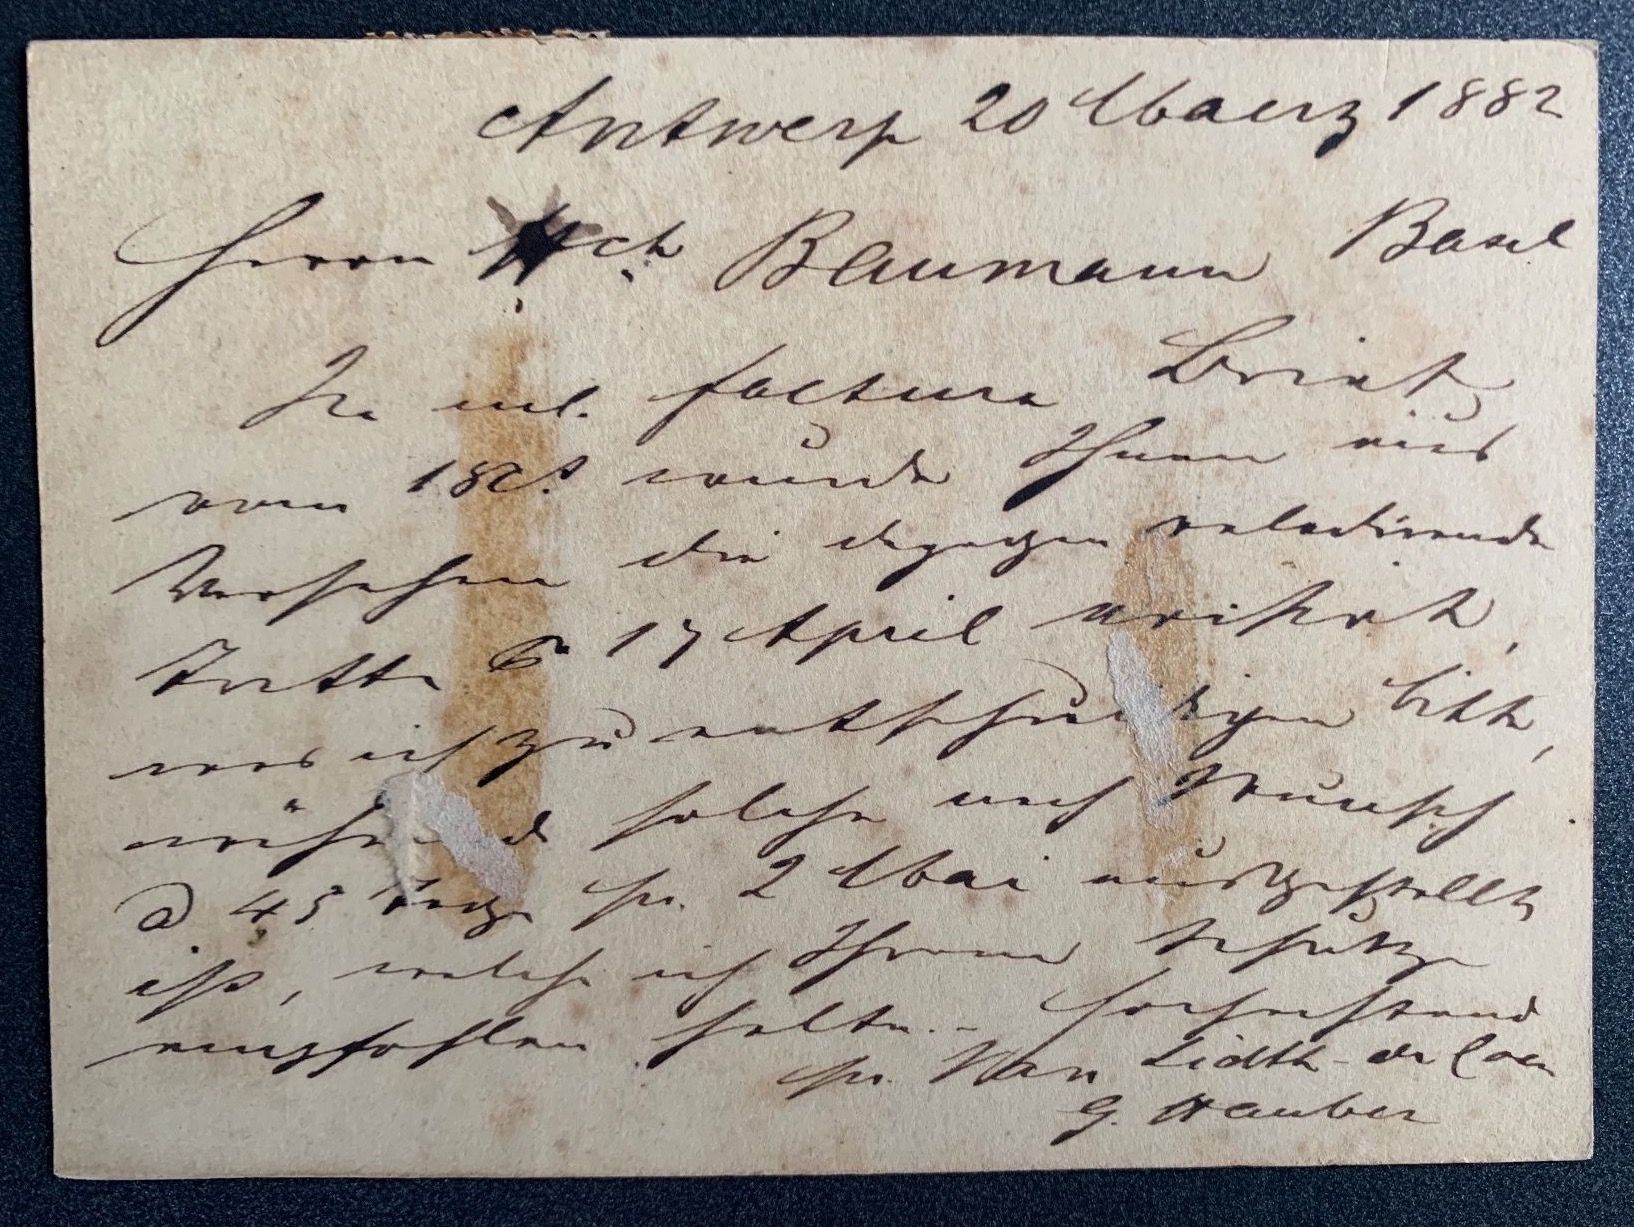 Antwerp 20 Maerz 1882
Herrn Baumann Basel
In factura Brief
vom 18 ct. wurde Ihnen aus
Versehen die dagegen relatirende
Tratte 17 April avisirt,
was ich zu entschuldigen bitte,
während solche nach Wunsch
a 45 Tage pr. 2 Mai ausgestellt
ist, welche ich Ihrem Schutze
empfohlen halte. – Hochachtend
pr. Van Lidth - de
G. Hauber